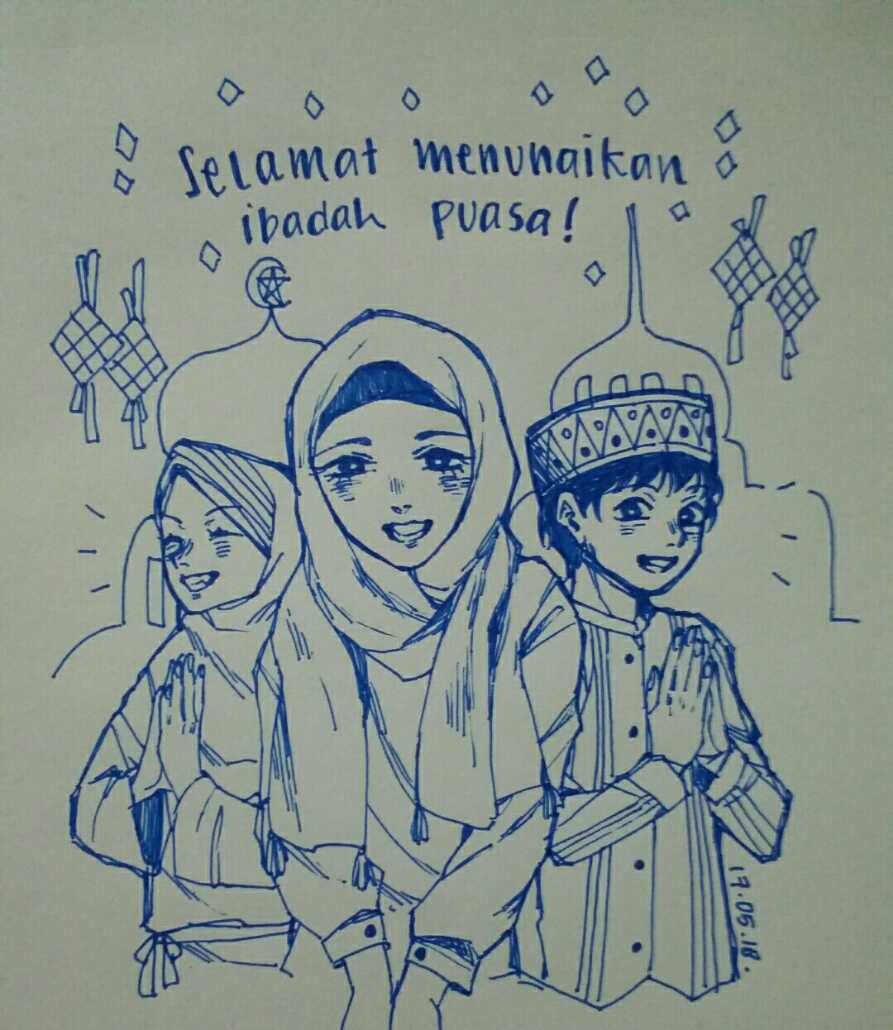 Selamat menunaikan
ibadah puasa!
17.05.18.